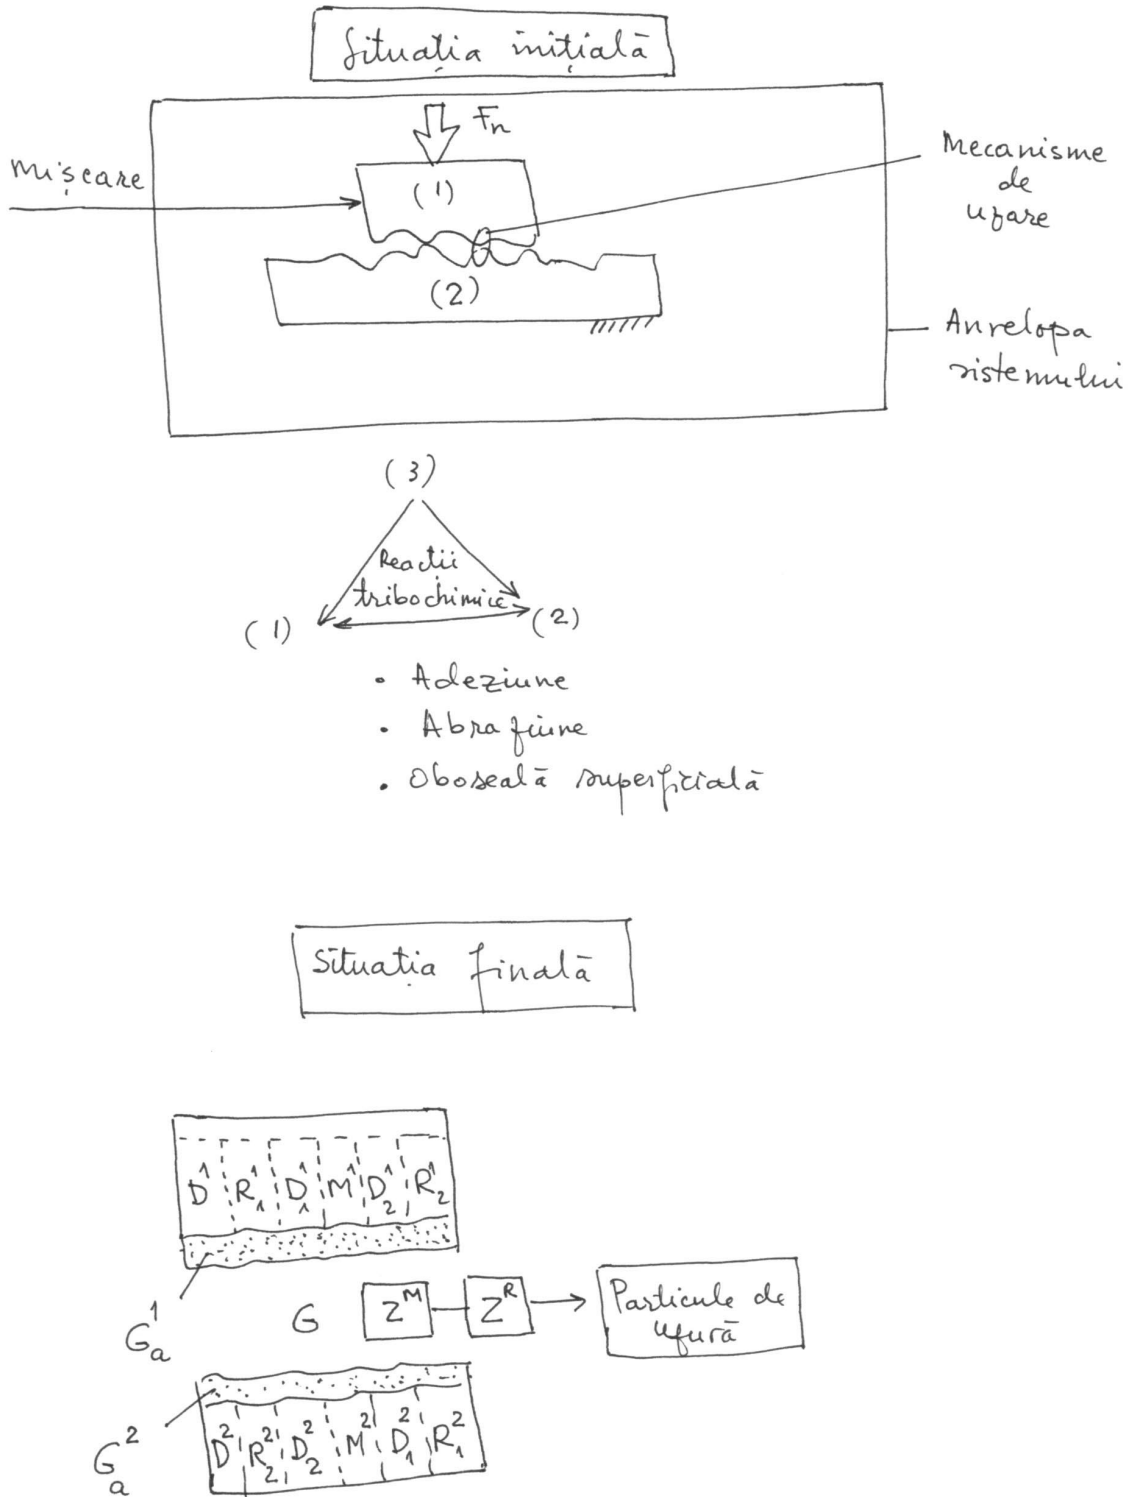 Situația inițială
Fn
Mișcare
(1)
Mecanisme
de
uzare
(2)
Anvelopa
sistemului
(3)
Reacții
tribochimice
(1)
(2)
• Adeziune
• Abraziune
• Oboseală superficială
Situația finală
D¹ R₁¹ D₁¹ M¹ D₂¹ R₂¹
Gₐ¹
G
Zᴹ
Zᴿ
Particule de
uzură
Gₐ²
D² R₂² D₂² M² D₁² R₁²